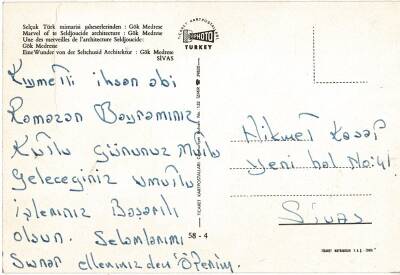 Selçuk Türk mimarisi şaheserlerinden : Gök Medrese
Marvel of te Seldjoucide architecture : Gök Medrese
Une des merveilles de l'architecture Seldjoucide:
Gök Medrese
EineWunder von der Seltchusid Architektur : Gök Medrese
SİVAS
PHOTO
TURKEY
Kıymetli ihsan abi
Ramazan Bayramınız
Kutlu gününüz Mutlu
Geleceğiniz umutlu
işleriniz Başarılı
olsun. Selamlarımı
Sunar ellerinizden öperim.
58 - 4
Hikmet
Yeni hal No: 41
Sivas